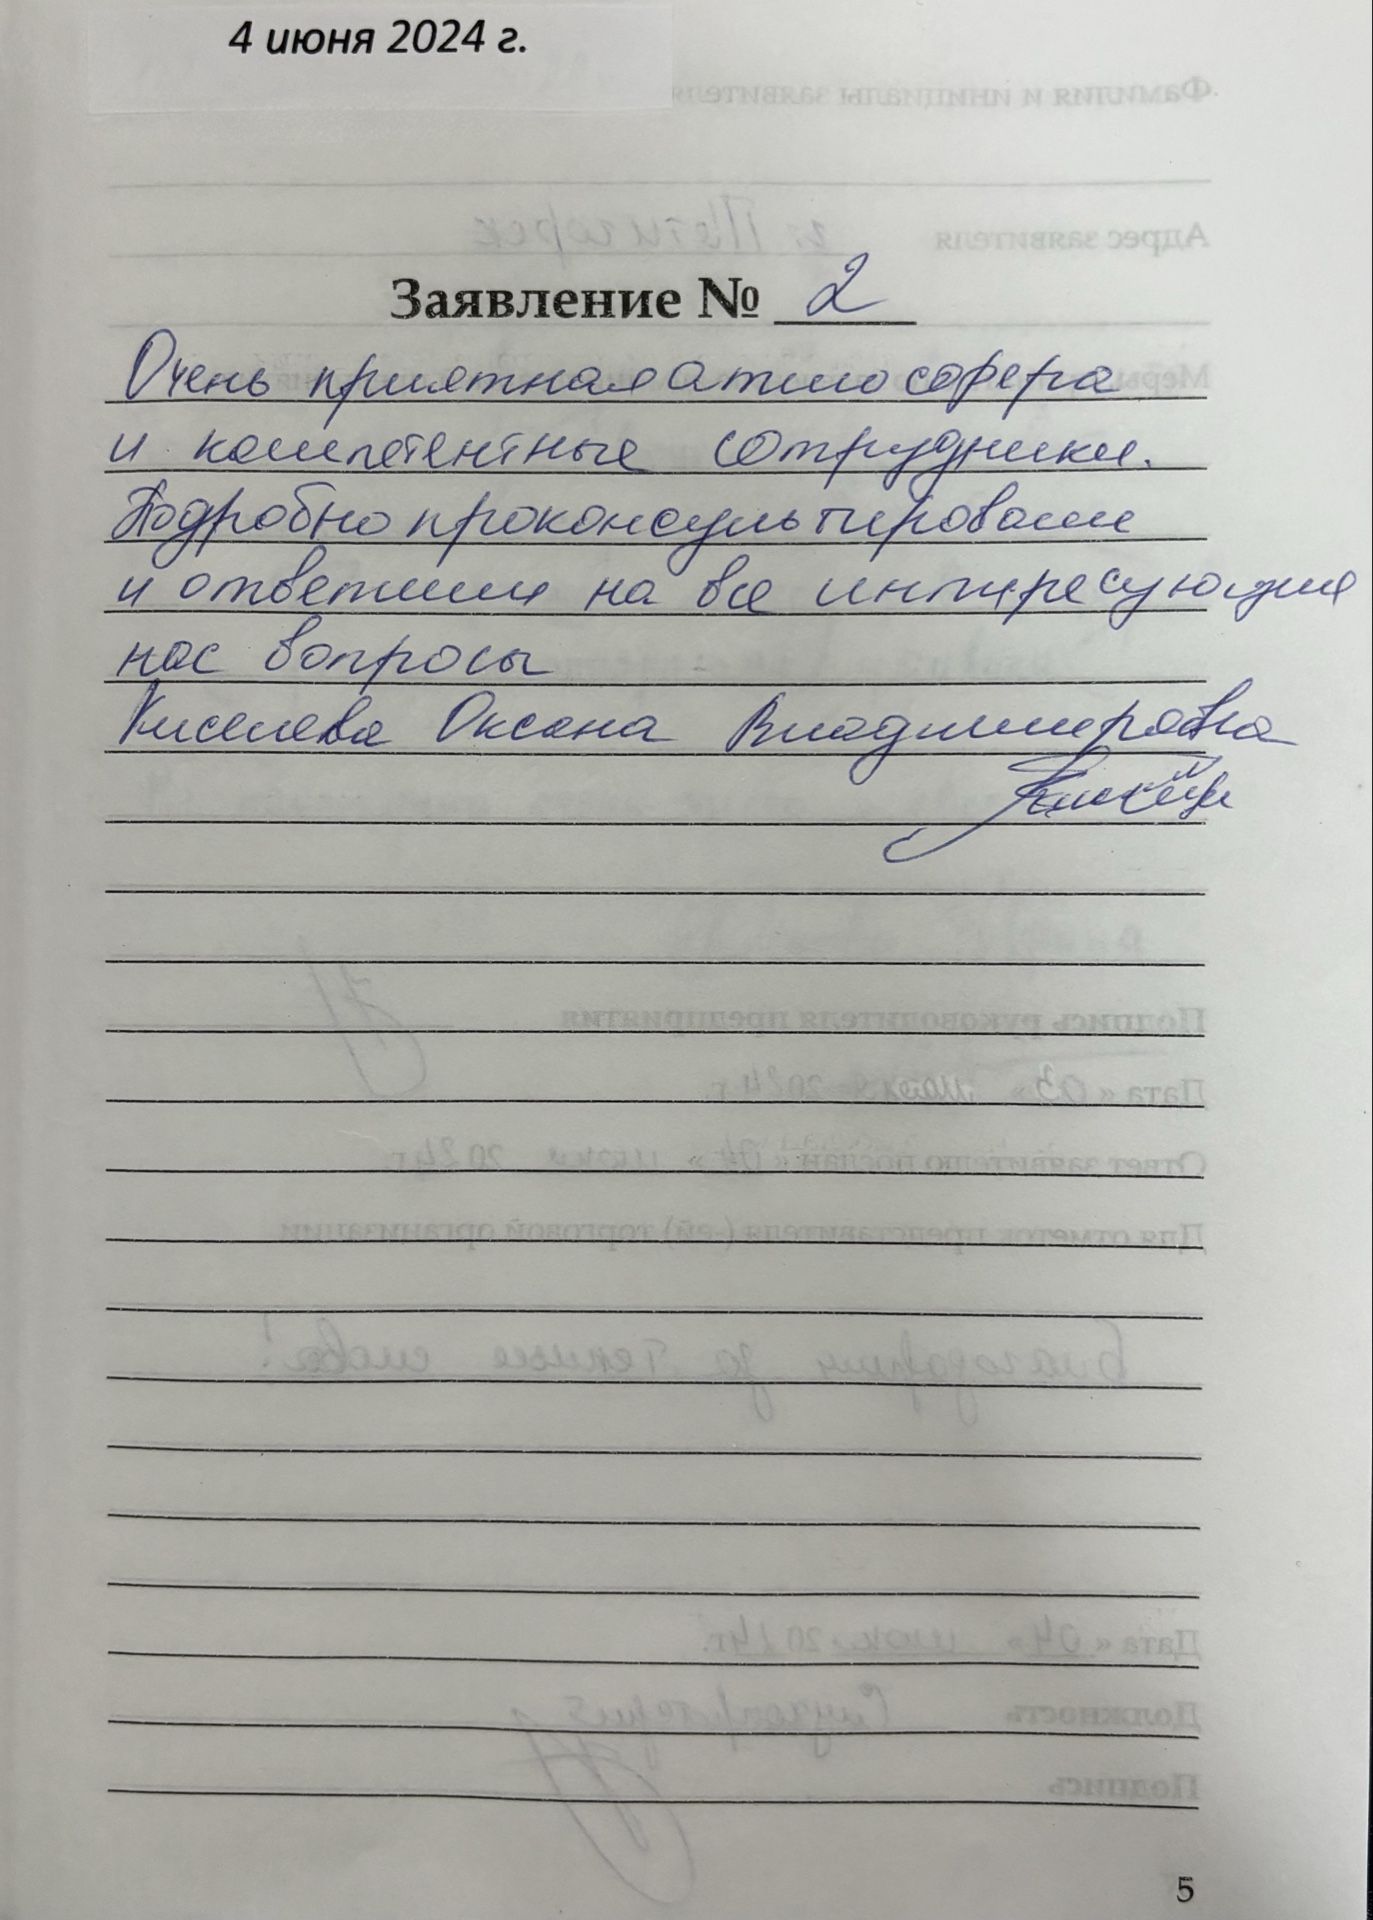 4 июня 2024 г.
Заявление № 2
Очень приятная атмосфера
и компетентные сотрудники.
Подробно проконсультировали
и ответили на все интересующие
нас вопросы
Киселева Оксана Владимировна
5